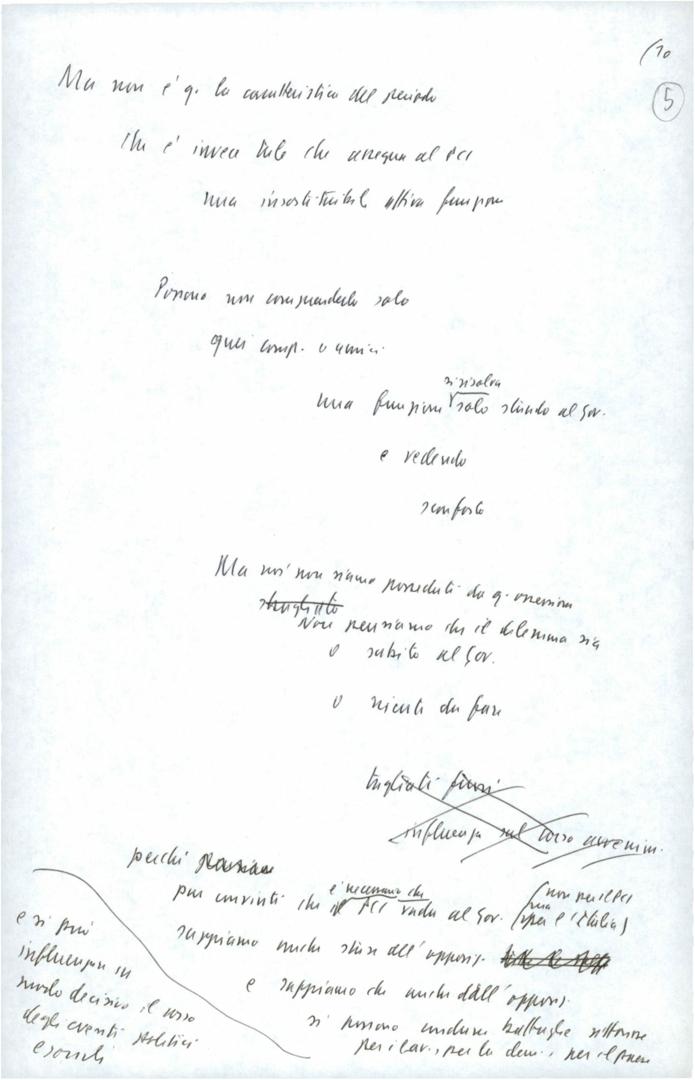 (10
5
Ma non è q. la caratteristica del periodo
Che è invece tale che assegna al PCI
una insostituibile attiva funzione
Possono non comprenderla solo
quei comp. o amici
si risolva
una funzione solo stando al Gov.
e vedendo
Ma noi non siamo posseduti da q. ossessione
sbagliato
Non pensiamo che il dilemma sia
o subito al Gov.
o niente da fare
tagliati fuori
influenza sul corso avvenim.
perché
è necessario che
(non per il PCI
pur convinti che il PCI vada al Gov.
ma
per l'Italia)
sappiamo anche stare all'oppos.
e sappiamo che anche dall'oppos.
si possono condurre battaglie
per il lav., per la dem., per il paese
e si può
influenzare in
modo decisivo il corso
degli eventi politici
e sociali